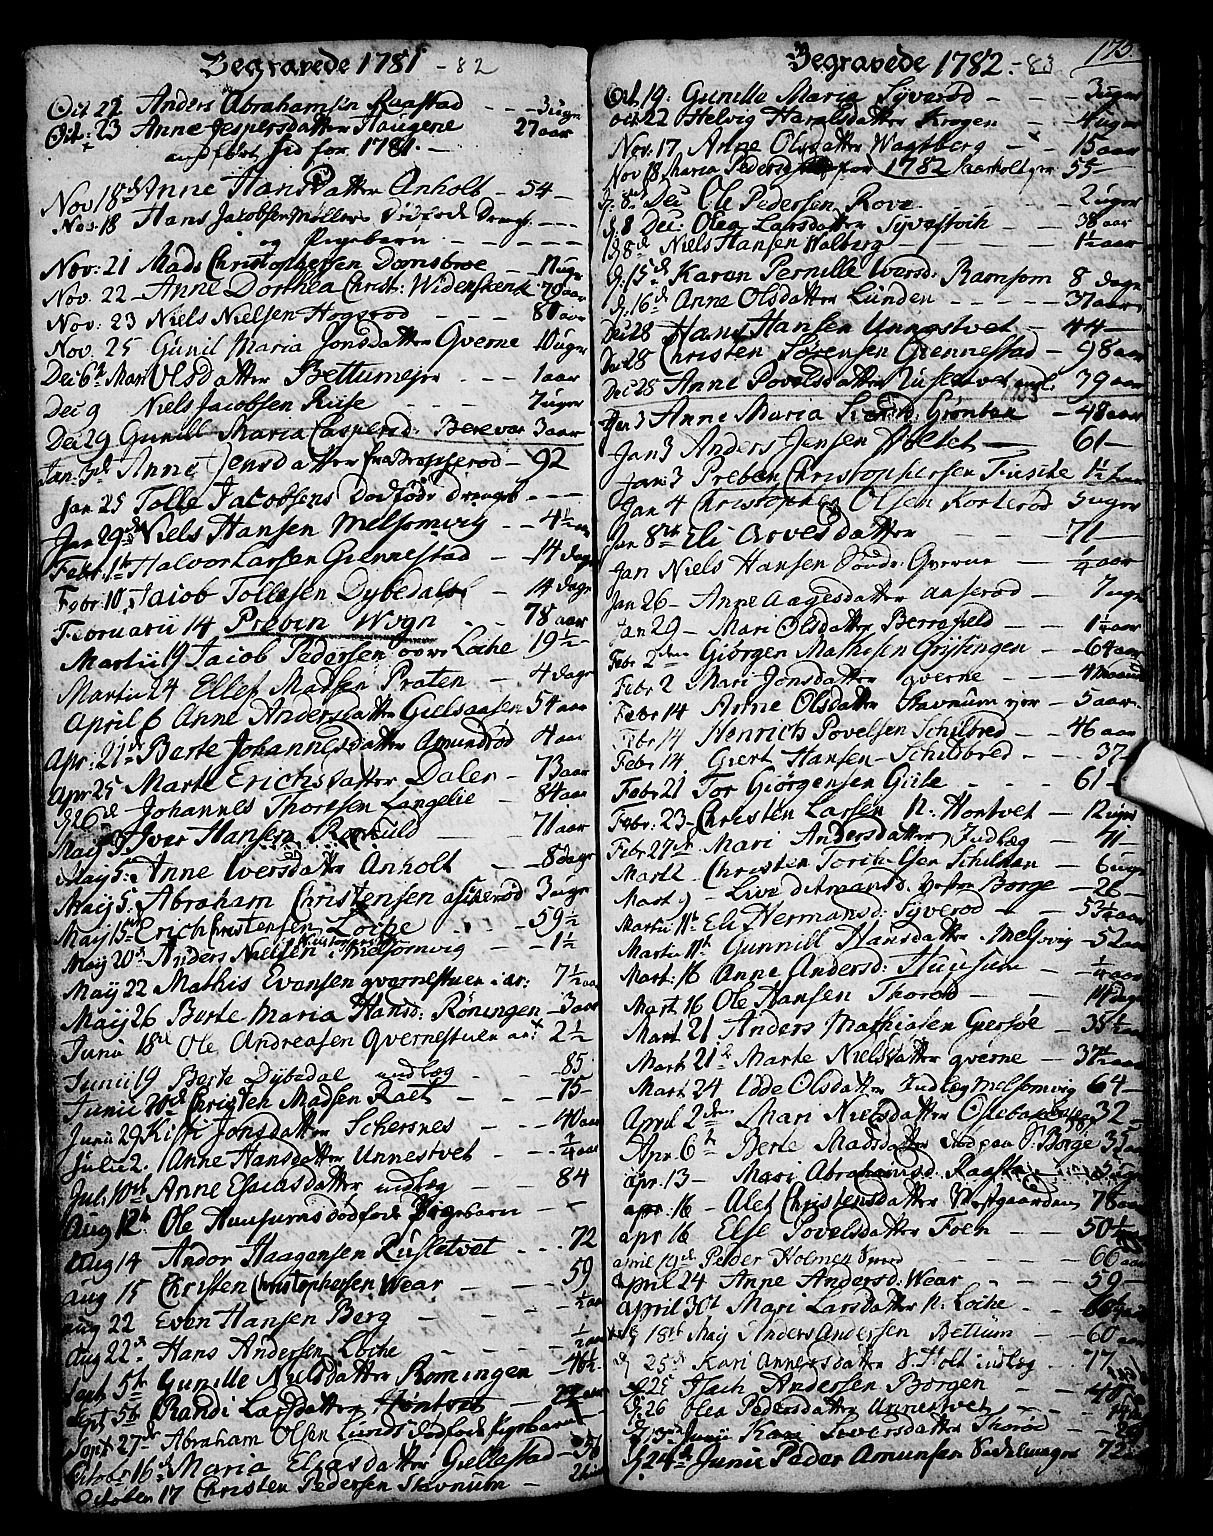 Begravede 1781 - 82
Oct 22 Anders Abrahamsen Raastad - - - 3 uger
Oct: 23 Anne Jespersdatter Haugene 27 aar
Nov 18 d Anne Hansdatter Anholt - 54 -
Nov. 18 Hans Jacobsen Møllers Dødføde Dreng - - -
og Pigebarn - - - -
Nov: 21 Mads Christophersen Domsbroe - - 11 uger
Nov. 22 - Anne Dorthea Christ: Widerskense 70 aar
Nov: 23 Niels Nielsen Hogsrød - - - 80 aar
Nov. 25 Gunil Maria Jonsdatter Qverne 10 uger
Dec 6 t Mari Olsdatter Bettumeje - - - 1 aar
Dec 9 Niels Jacobsen Ruse - - - 7 uger
Dec 29 Gunill Maria Caspersd: Berevar 3 aar
Jan. 3 d Anne Jensdatter fra Drapserød - 92
Jan 25 Tolle Jacobsens Dødføde drengeb - - -
Jan 29 d Niels Hansen Melsomvig - - 4 1/2 aar
Febr. 1 t Halvor Larsen Gennestad - - 14 dage
Febr: 10 Jacob Tollessen Dybedahl - 14 dage
Februarii 14 Preben Wogn - - 78 aar
Martii 19 Jacob Pedersen овre Løche 19 1/2 -
Martii 24 Ellef Matsen Præten - - 4 dage
April 6 Anne Andersdatter Gielsaasen 54 aar
Apr: 21 d Berte Johannesdatter Amundrød 4 aar
Apr 25 Marte Erichsdatter Daler - 73 aar
d 26 d Johannes Thoresen Langelie - - 84 aar
May 3 Iver Hansen Rørkuld - - 71 aar
May 5. Anne Iversdatter Anholt - - 8 dage
Maij 5. Abraham Christensen Askerød 3 uger
Maij 15 d Erich Christensen Løche - 59 1/2
May 20 d Anders Nielsen i Melsomvig - 1 1/2
Maij 22 Mathis Evansen qvernestuen i ar: 7 1/2 aar
Maij 26 Berte Maria Hansd: Røningen - 3 aar
Junii 18 d Ole Andreasen Qvernestuen 2 1/2
Junii 19 Berte Dybedal indlæg - 85
Junii 20 d Christen Madsen Raet - - - 75 -
Junii 29 Kisti Jonsdatter Schersnes - - 40 aar
Julii 2. Anne Hansdatter Unnestvet - - 1/4 aar
Jul. 10 th Anne Esaiasdatter indlæg - - 84
Aug 12 t Ole Huusums dødføde Pigebarn - -
Aug 14 Andor Haagensen Rusletvet - . . 72
Aug 15 Christen Christophersen Wear - - 59
Aug 22 Even Hansen Berg - - - 1/2 aar
Aug 22 d Hans Andersen Løche - - - 1/2 aar
Sept 5 t Gunille Nielsdatter Romingen - 46 1/2 -
Sept 5 t Randi Larsdatter Høntvet - - 22 aar
Sept 27 d Abraham Olsen Lunds Dødføde Pigebarn
October 16 d Maria Eliasdatter Gellestad - 50
October 17 Christen Pedersen Stavnum -
175
Begravede 1782 - 83
Oct. 19: Gunille Maria Syverød - - 3 uger
Oct 22 Helvig Haralsdatter Krogen - - 4 uger
Nov. 17 Anne Olsdatter Wagtberg - - 15 aar
Nov 18 Maria Peders 1782 55 -
8 d Dec Ole Pedersen Rove - - - 2 uger
d. 8 Dec: Olea Larsdatter Syvestoch - - 38 aar
d 8 d Niels Hansen Valberg - - - 1 1/2 aar
d: 15 d Karen Pernille Iversd: Ramsom 8 dage
d. 16 d Anne Olsdatter Lunden - - - - 37 aar
Dec 28 Hans Hansen Unnestvet - 44 -
Dec 28 Christen Sørensen Gjennestad - 98 aar
Dec 28 Anne Povelsdatter 79 aar
Jan 3 Anne Maria Grøntan - 48 aar
Jan 3 Anders Jensen Abeltet - 61 -
Jan: 3 Preben Christophersen Fusche 1 1/2 aar
Jan 4 Christopher Olsen Korterød 5 uger
Jan 8 th Eli Arvesdatter - - - 71 -
Jan Niels Hansen Søndr Qverne - - 1/4 aar
Jan 26 - Anne Aagesdatter Aaserød - 7 uger
Jan 29 - Mari Olsdatter Berrefjeld - - 1 1/2 aar
Febr 2 den Giörgen Mathesen Grytingen - - 64 aar
Febr 2 Mari Jonsdatter qverne - - 4 maaned
Febr 14 Anne Olsdatter Stavnum - 5 aar
Febr 14 Henrich Povelsen Schilbred - - 46 aar
Febr 14 Giert Hansen - Schilbred - - 37 -
Febr 21 Tor Giörgensen Gile - - - 61 -
Febr: 23 - Christen Larsen N: Hontvet - - 12 uger
Febr 27 d Mari Andersdatter Indlæg - - 71 -
Mart 2 - Christen Schildan - - 6 uger
Mart 9 - Live Ditmansd. Vestre Borge - 26 -
Martii 11 t Eli Hermansd: Syverød - - 53 1/2 aar
Martii 11 th Gunnill Hansdatter - Melsvig - 52 aar
Mart: 16 Anne Andersd: Huusum - - 1/4 aar
Mart 16 Ole Hansen Thorød - - - 14 dage
Mart 21 Anders Mathiasen Gersøe - 35 1/2 aar
Mart 21 d - Marte Nielsdatter qverne - 37 1/2 aar
Mart 24 Idde Olsdatter Indlæg Melsomvig 64 -
April 2 den Mari Nielsdatter 32 -
Apr. 6 t Berte Madsdatter Borge 33 aar
apr. 13 - Mari Abrahamsd. Raasta
apr. 16 - Alet Christensdatter Westgaarden 78 aar
apr 16 Else Povelsdatter Foen - - 50 1/2
April 19 d Peder Holmen Smed - - - 66 aar
April 24 Anne Andersd: Wear - - - 59 -
April 30 t Mari Larsdatter N: Løche - -
d 18 th Maij Anders Andersen Bettum - - 60 aar
d 25 d Kari Annersdatter S. Holt indlæg - . 77
d 25 Isach Andersen Borgen - -
d 26 Olea Pedersdatter Unnestvet - -
Junii Kari Siversdatter Thorød - -
d 24 d Junii Peder Amunsen Sadelmager 72